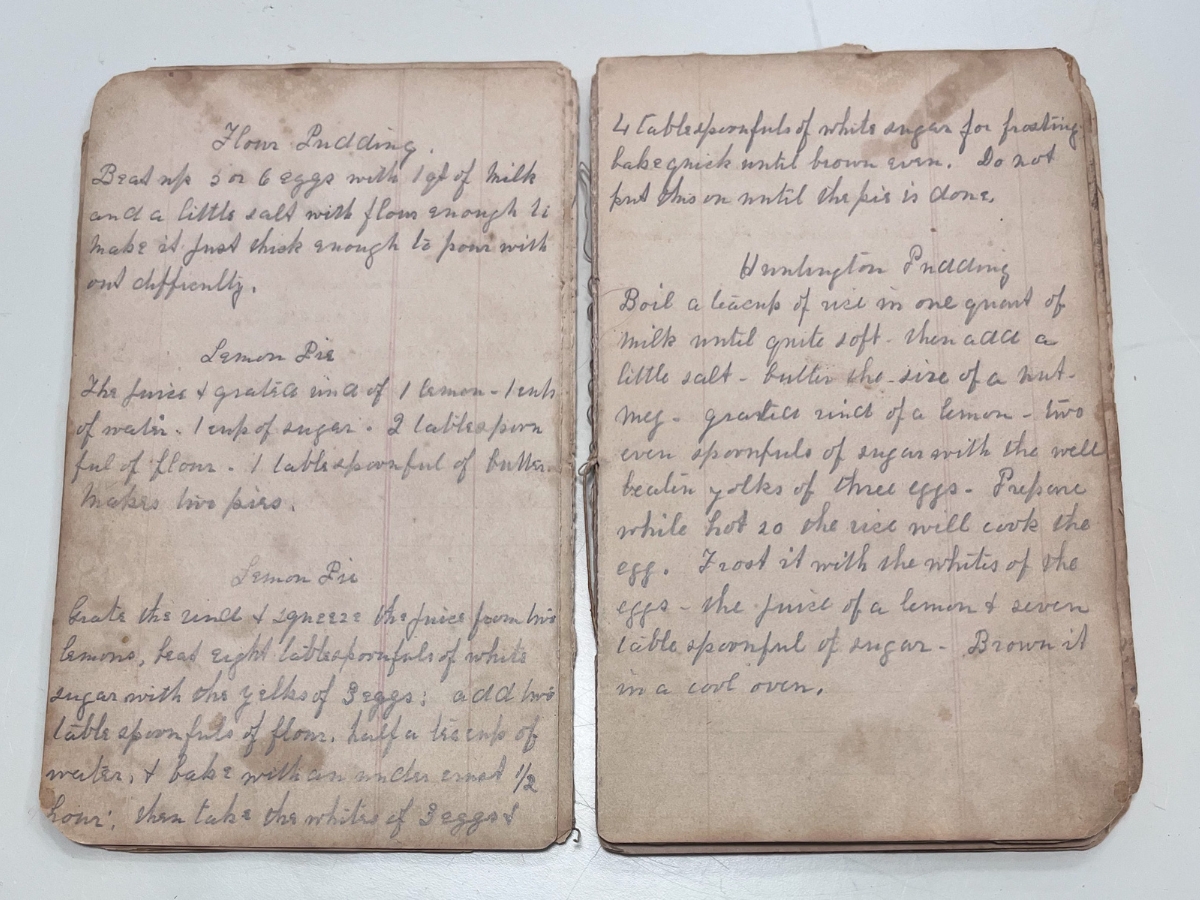 Flour Pudding.
Beat up 5 or 6 eggs with 1 qt of Milk
and a little salt with flour enough to
make it just thick enough to pour with
out difficulty.
Lemon Pie
The juice & grated rind of 1 lemon - 1 cup
of water - 1 cup of sugar - 2 tablespoon
ful of flour - 1 tablespoonful of butter -
Makes two pies.
Lemon Pie
Grate the rind & squeeze the juice from two
lemons, beat eight tablespoonfuls of white
sugar with the yelks of 3 eggs; add two
table spoonfuls of flour, half a teacup of
water, & bake with an under crust 1/2
hour; then take the whites of 3 eggs &
4 tablespoonfuls of white sugar for frosting
bake quick until brown even. Do not
put this on until the pie is done.
Huntington Pudding
Boil a teacup of rice in one quart of
Milk until quite soft - then add a
little salt - butter the size of a nut-
meg - grated rind of a lemon - two
even spoonfuls of sugar with the well
beaten yolks of three eggs - Prepare
while hot so the rice will cook the
egg. Frost it with the whites of the
eggs - the juice of a lemon & seven
table spoonful of sugar - Brown it
in a cool oven.